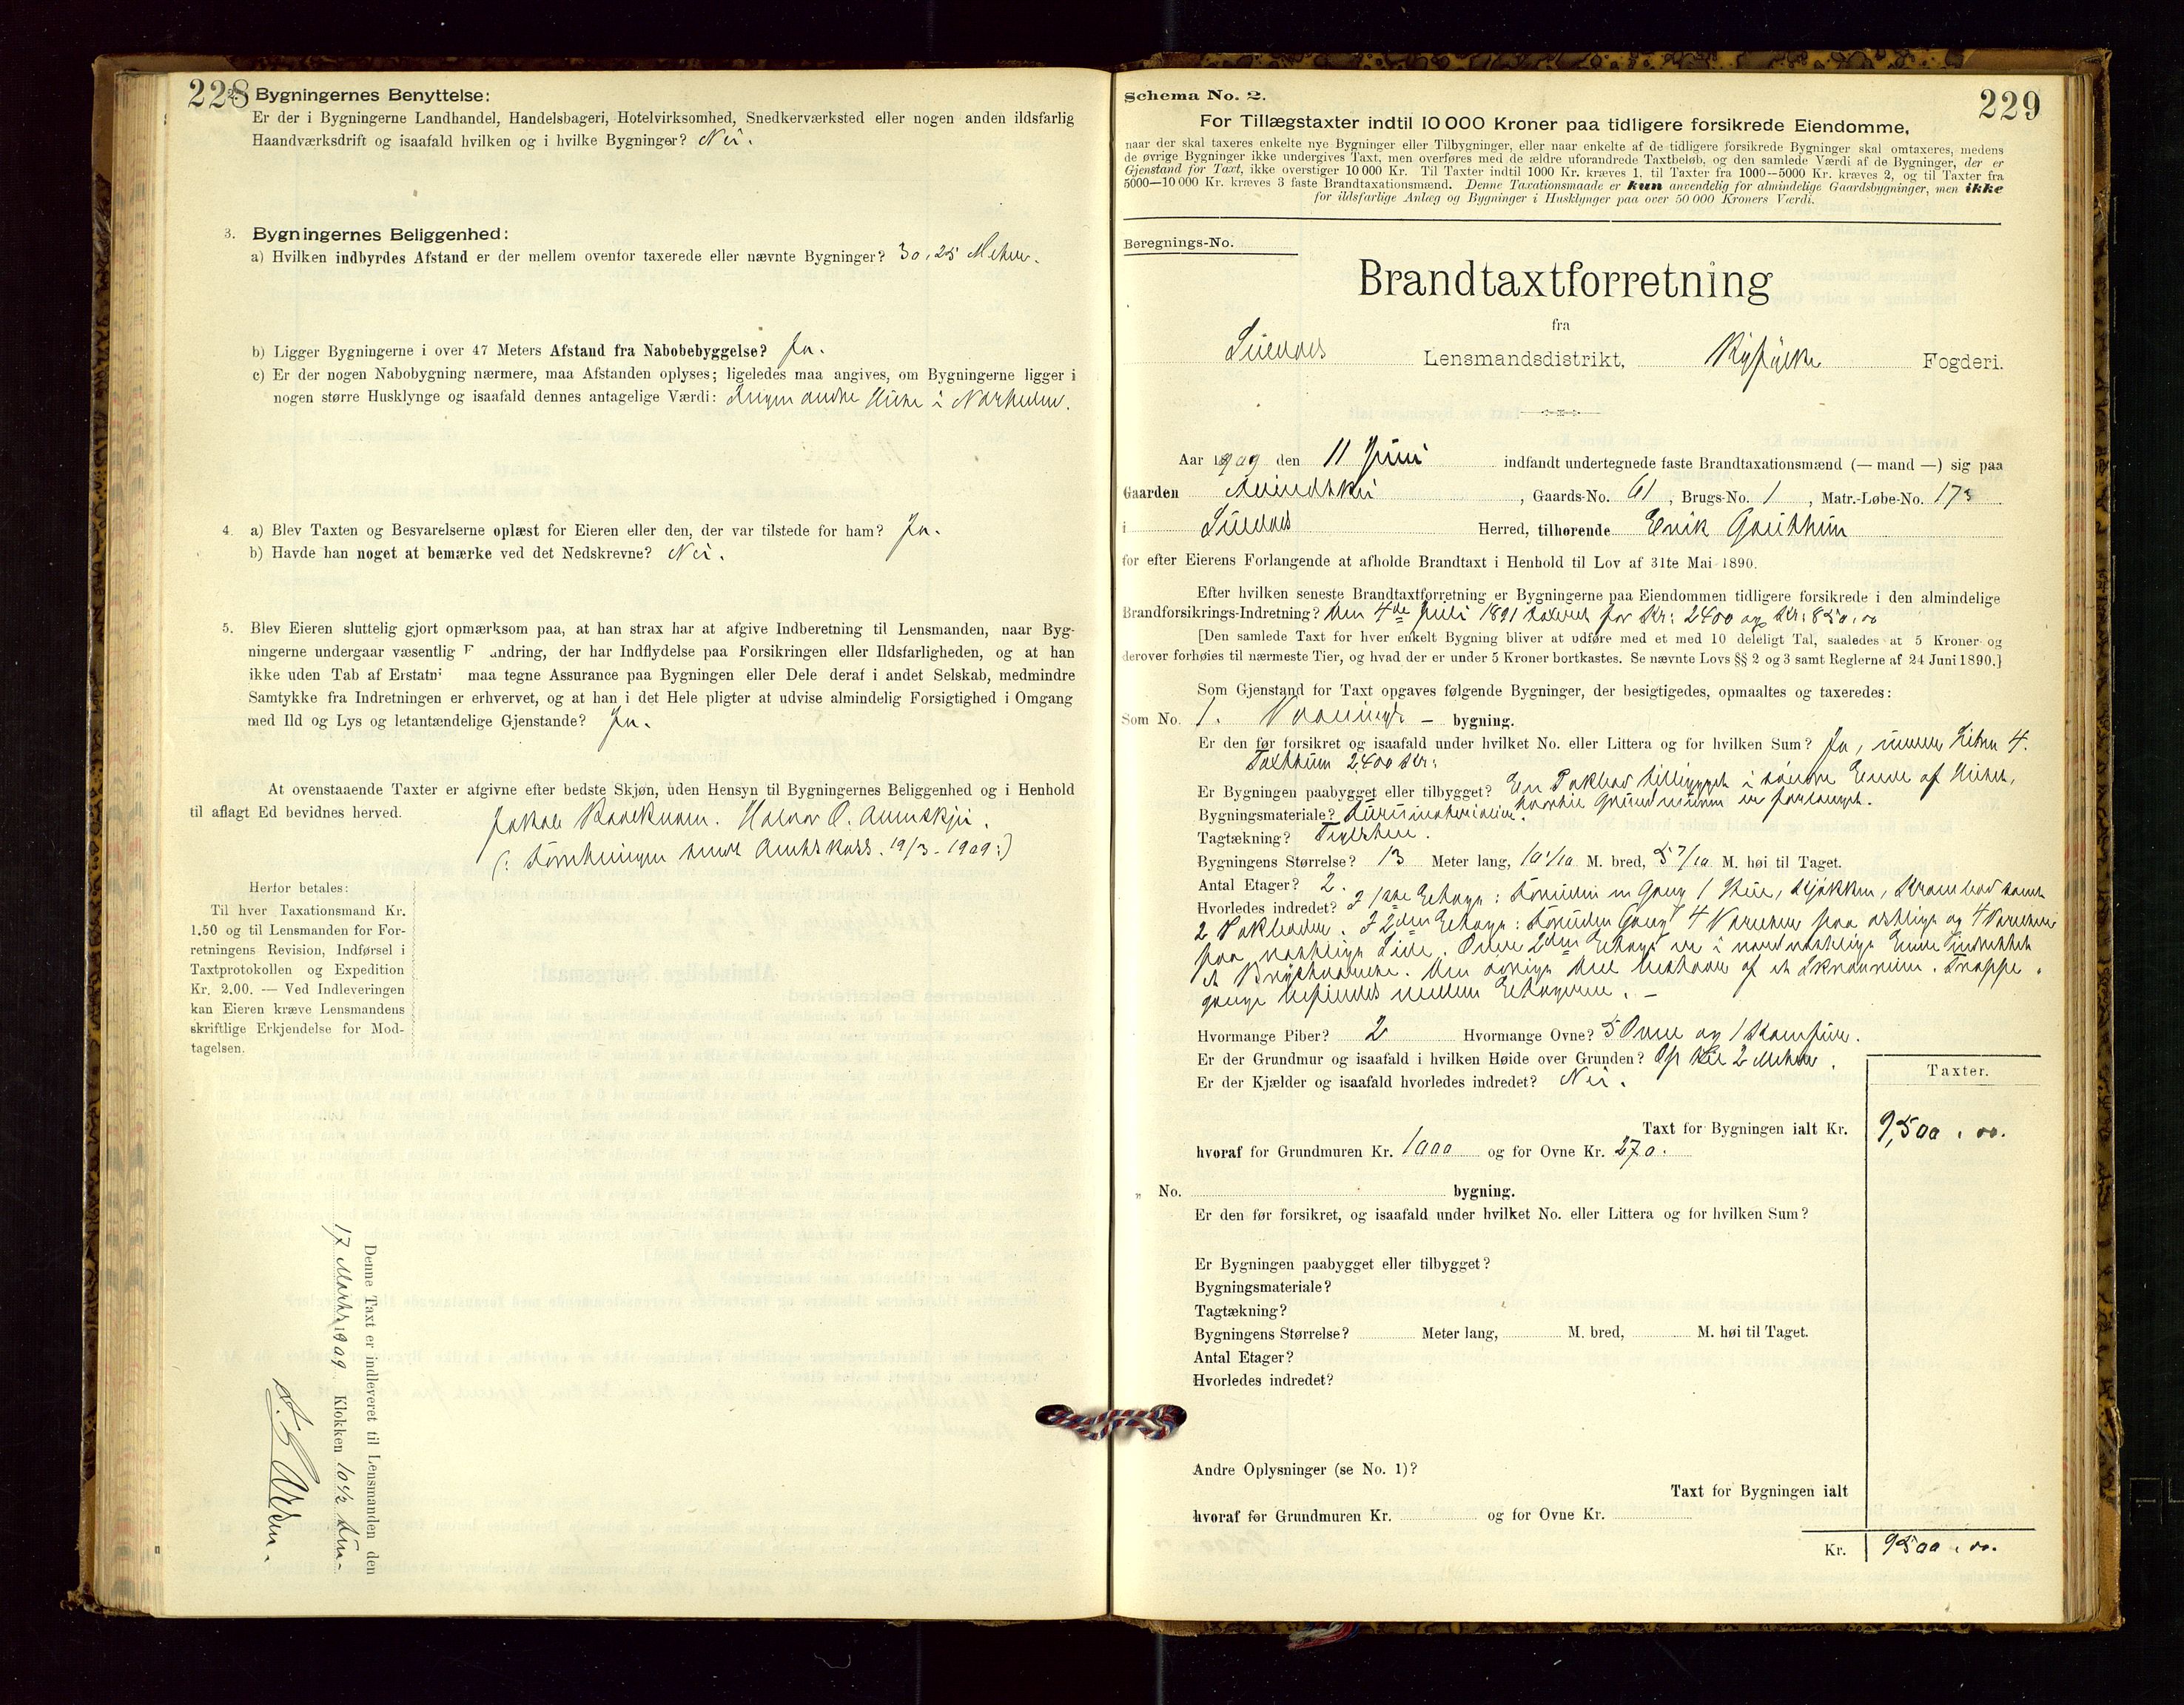 228
Bygningernes Benyttelse:
Er der i Bygningerne Landhandel, Handelsbageri, Hotelvirksomhed, Snedkerværksted eller nogen anden ildsfarlig
Haandværksdrift og isaafald hvilken og i hvilke Bygninger? Nei.
3. Bygningernes Beliggenhed:
a) Hvilken indbyrdes Afstand er der mellem ovenfor taxerede eller nævnte Bygninger? 30, 25 Meter.
b) Ligger Bygningerne i over 47 Meters Afstand fra Nabobebyggelse? Ja.
c) Er der nogen Nabobygning nærmere, maa Afstanden oplyses; ligeledes maa angives, om Bygningerne ligger i
nogen større Husklynge og isaafald dennes antagelige Værdi: Ingen andre Huse i Nærheden.
4. a) Blev Taxten og Besvarelserne oplæst for Eieren eller den, der var tilstede for ham? Ja.
b) Havde han noget at bemærke ved det Nedskrevne? Nei.
5. Blev Eieren sluttelig gjort opmærksom paa, at han strax har at afgive Indberetning til Lensmanden, naar Byg-
ningerne undergaar væsentlig F andring, der har Indflydelse paa Forsikringen eller Ildsfarligheden, og at han
ikke uden Tab af Erstatn maa tegne Assurance paa Bygningen eller Dele deraf i andet Selskab, medmindre
Samtykke fra Indretningen er erhvervet, og at han i det Hele pligter at udvise almindelig Forsigtighed i Omgang
med Ild og Lys og letantændelige Gjenstande? Ja.
At ovenstaaende Taxter er afgivne efter bedste Skjøn, uden Hensyn til Bygningernes Beliggenhed og i Henhold
til aflagt Ed bevidnes herved.
Jakob Halvor O.
(: sendt 19/3 - 1909:)
Herfor betales:
Til hver Taxationsmand Kr.
1.50 og til Lensmanden for For-
retningens Revision, Indførsel i
Taxtprotokollen og Expedition
Kr. 2.00. — Ved Indleveringen
kan Eieren kræve Lensmandens
skriftlige Erkjendelse for Mod-
tagelsen.
Denne Taxt er indleveret til Lensmanden den
17 Marts 1909 Klokken 10 1/2
229
Schema No. 2.
For Tillægstaxter indtil 10 000 Kroner paa tidligere forsikrede Eiendomme,
naar der skal taxeres enkelte nye Bygninger eller Tilbygninger, eller naar enkelte af de tidligere forsikrede Bygninger skal omtaxeres, medens
de øvrige Bygninger ikke undergives Taxt, men overføres med de ældre uforandrede Taxtbeløb, og den samlede Værdi af de Bygninger, der er
Gjenstand for Taxt, ikke overstiger 10 000 Kr. Til Taxter indtil 1000 Kr. kræves 1, til Taxter fra 1000—5000 Kr. kræves 2, og til Taxter fra
5000—10 000 Kr. kræves 3 faste Brandtaxationsmænd. Denne Taxationsmaade er kun anvendelig for almindelige Gaardsbygninger, men ikke
for ildsfarlige Anlæg og Bygninger i Husklynger paa over 50 000 Kroners Værdi.
Beregnings-No.
Brandtaxtforretning
fra
Suldal Lensmandsdistrikt, Ryfylke Fogderi.
Aar 1909 den 11 Juni indfandt undertegnede faste Brandtaxationsmænd (— mand —) sig paa
Gaarden , Gaards-No. 61, Brugs-No. 1, Matr.-Løbe-No. 173
i Suldal Herred, tilhørende Erik
for efter Eierens Forlangende at afholde Brandtaxt i Henhold til Lov af 31te Mai 1890.
Efter hvilken seneste Brandtaxtforretning er Bygningerne paa Eiendommen tidligere forsikrede i den almindelige
Brandforsikrings-Indretning? Den 4de Juli 1891 taxeret for Kr: 2400 og Kr: 850,00
[Den samlede Taxt for hver enkelt Bygning bliver at udføre med et med 10 deleligt Tal, saaledes at 5 Kroner og
derover forhøies til nærmeste Tier, og hvad der er under 5 Kroner bortkastes. Se nævnte Lovs §§ 2 og 3 samt Reglerne af 24 Juni 1890.]
Som Gjenstand for Taxt opgaves følgende Bygninger, der besigtigedes, opmaaltes og taxeredes:
Som No. 1. Vaanings - bygning.
Er den før forsikret og isaafald under hvilket No. eller Littera og for hvilken Sum? Ja, under Litra 4.
Taxtsum 2400 Kr:
Er Bygningen paabygget eller tilbygget? En Pakbod tilbygget i søndre Ende af Huset,
hvorhos Grundmuren er forlænget.
Bygningsmateriale?
Tagtækning? Teglsten.
Bygningens Størrelse? 13 Meter lang, 10 1/10 M. bred, 5 7/10 M. høi til Taget.
Antal Etager? 2.
Hvorledes indredet? I 1ste Etage: foruden en Gang 1 Stue, Kjøkken, Krambod samt
2 Pakboder. I 2den Etage: foruden Gang 4 Værelser paa østlige og 4 Værelser
paa vestlige Side. Over 2den Etage er i nordvestlige Ende indrettet
et Den øvrige Del bestaar af et . Trappe-
gange befindes mellem Etagerne. —
Hvormange Piber? 2 Hvormange Ovne? 5 Ovne og 1 Komfur.
Er der Grundmur og isaafald i hvilken Høide over Grunden? Op til 2 Meter.
Er der Kjælder og isaafald hvorledes indredet? Nei.
Taxter.
Taxt for Bygningen ialt Kr. 9,500,00.
hvoraf for Grundmuren Kr. 1000 og for Ovne Kr. 270.
„ No. bygning.
Er den før forsikret, og isaafald under hvilket No. eller Littera og for hvilken Sum?
Er Bygningen paabygget eller tilbygget?
Bygningsmateriale?
Tagtækning?
Bygningens Størrelse? Meter lang, M. bred, M. høi til Taget.
Antal Etager?
Hvorledes indredet?
Andre Oplysninger (se No. 1)?
Taxt for Bygningen ialt
hvoraf for Grundmuren Kr. og for Ovne Kr.
Kr. 9500,00.